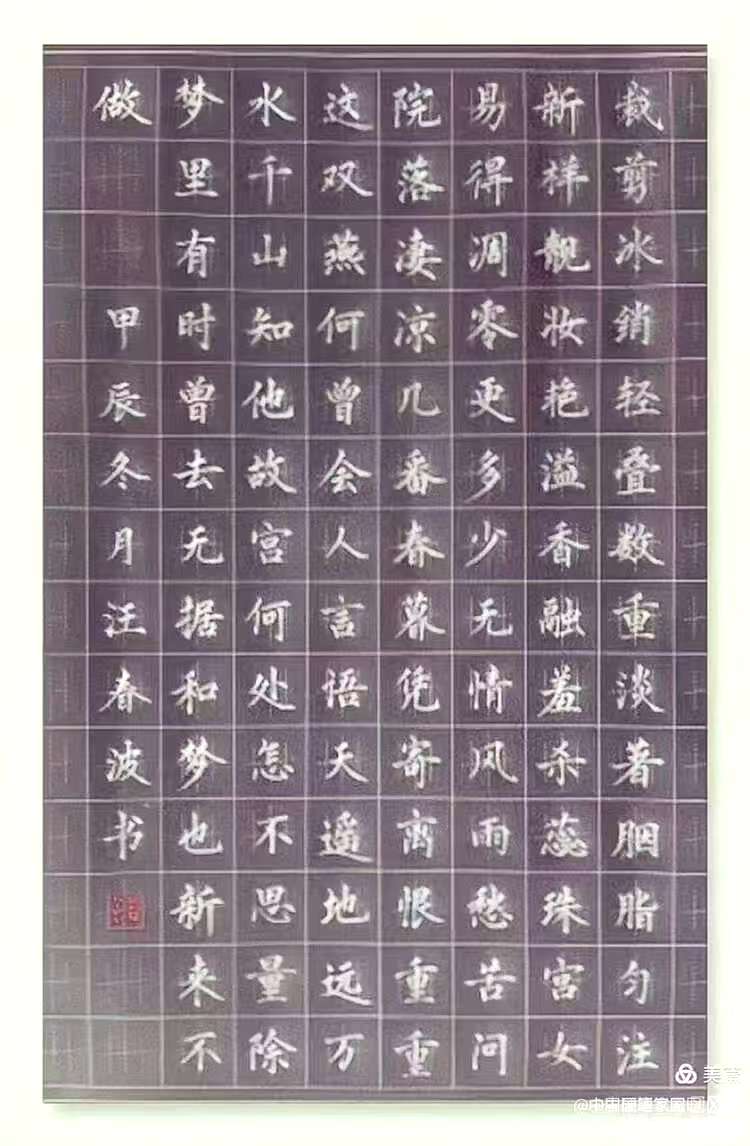 裁剪冰销轻叠数重淡著胭脂匀注
新样靓妆艳溢香融羞杀蕊珠宫女
易得凋零更多少无情风雨愁苦问
院落凄凉几番春暮凭寄离恨重重
这双燕何曾会人言语天遥地远万
水千山知他故宫何处怎不思量除
梦里有时曾去无据和梦也新来不
做
甲辰冬月汪春波书
美篇